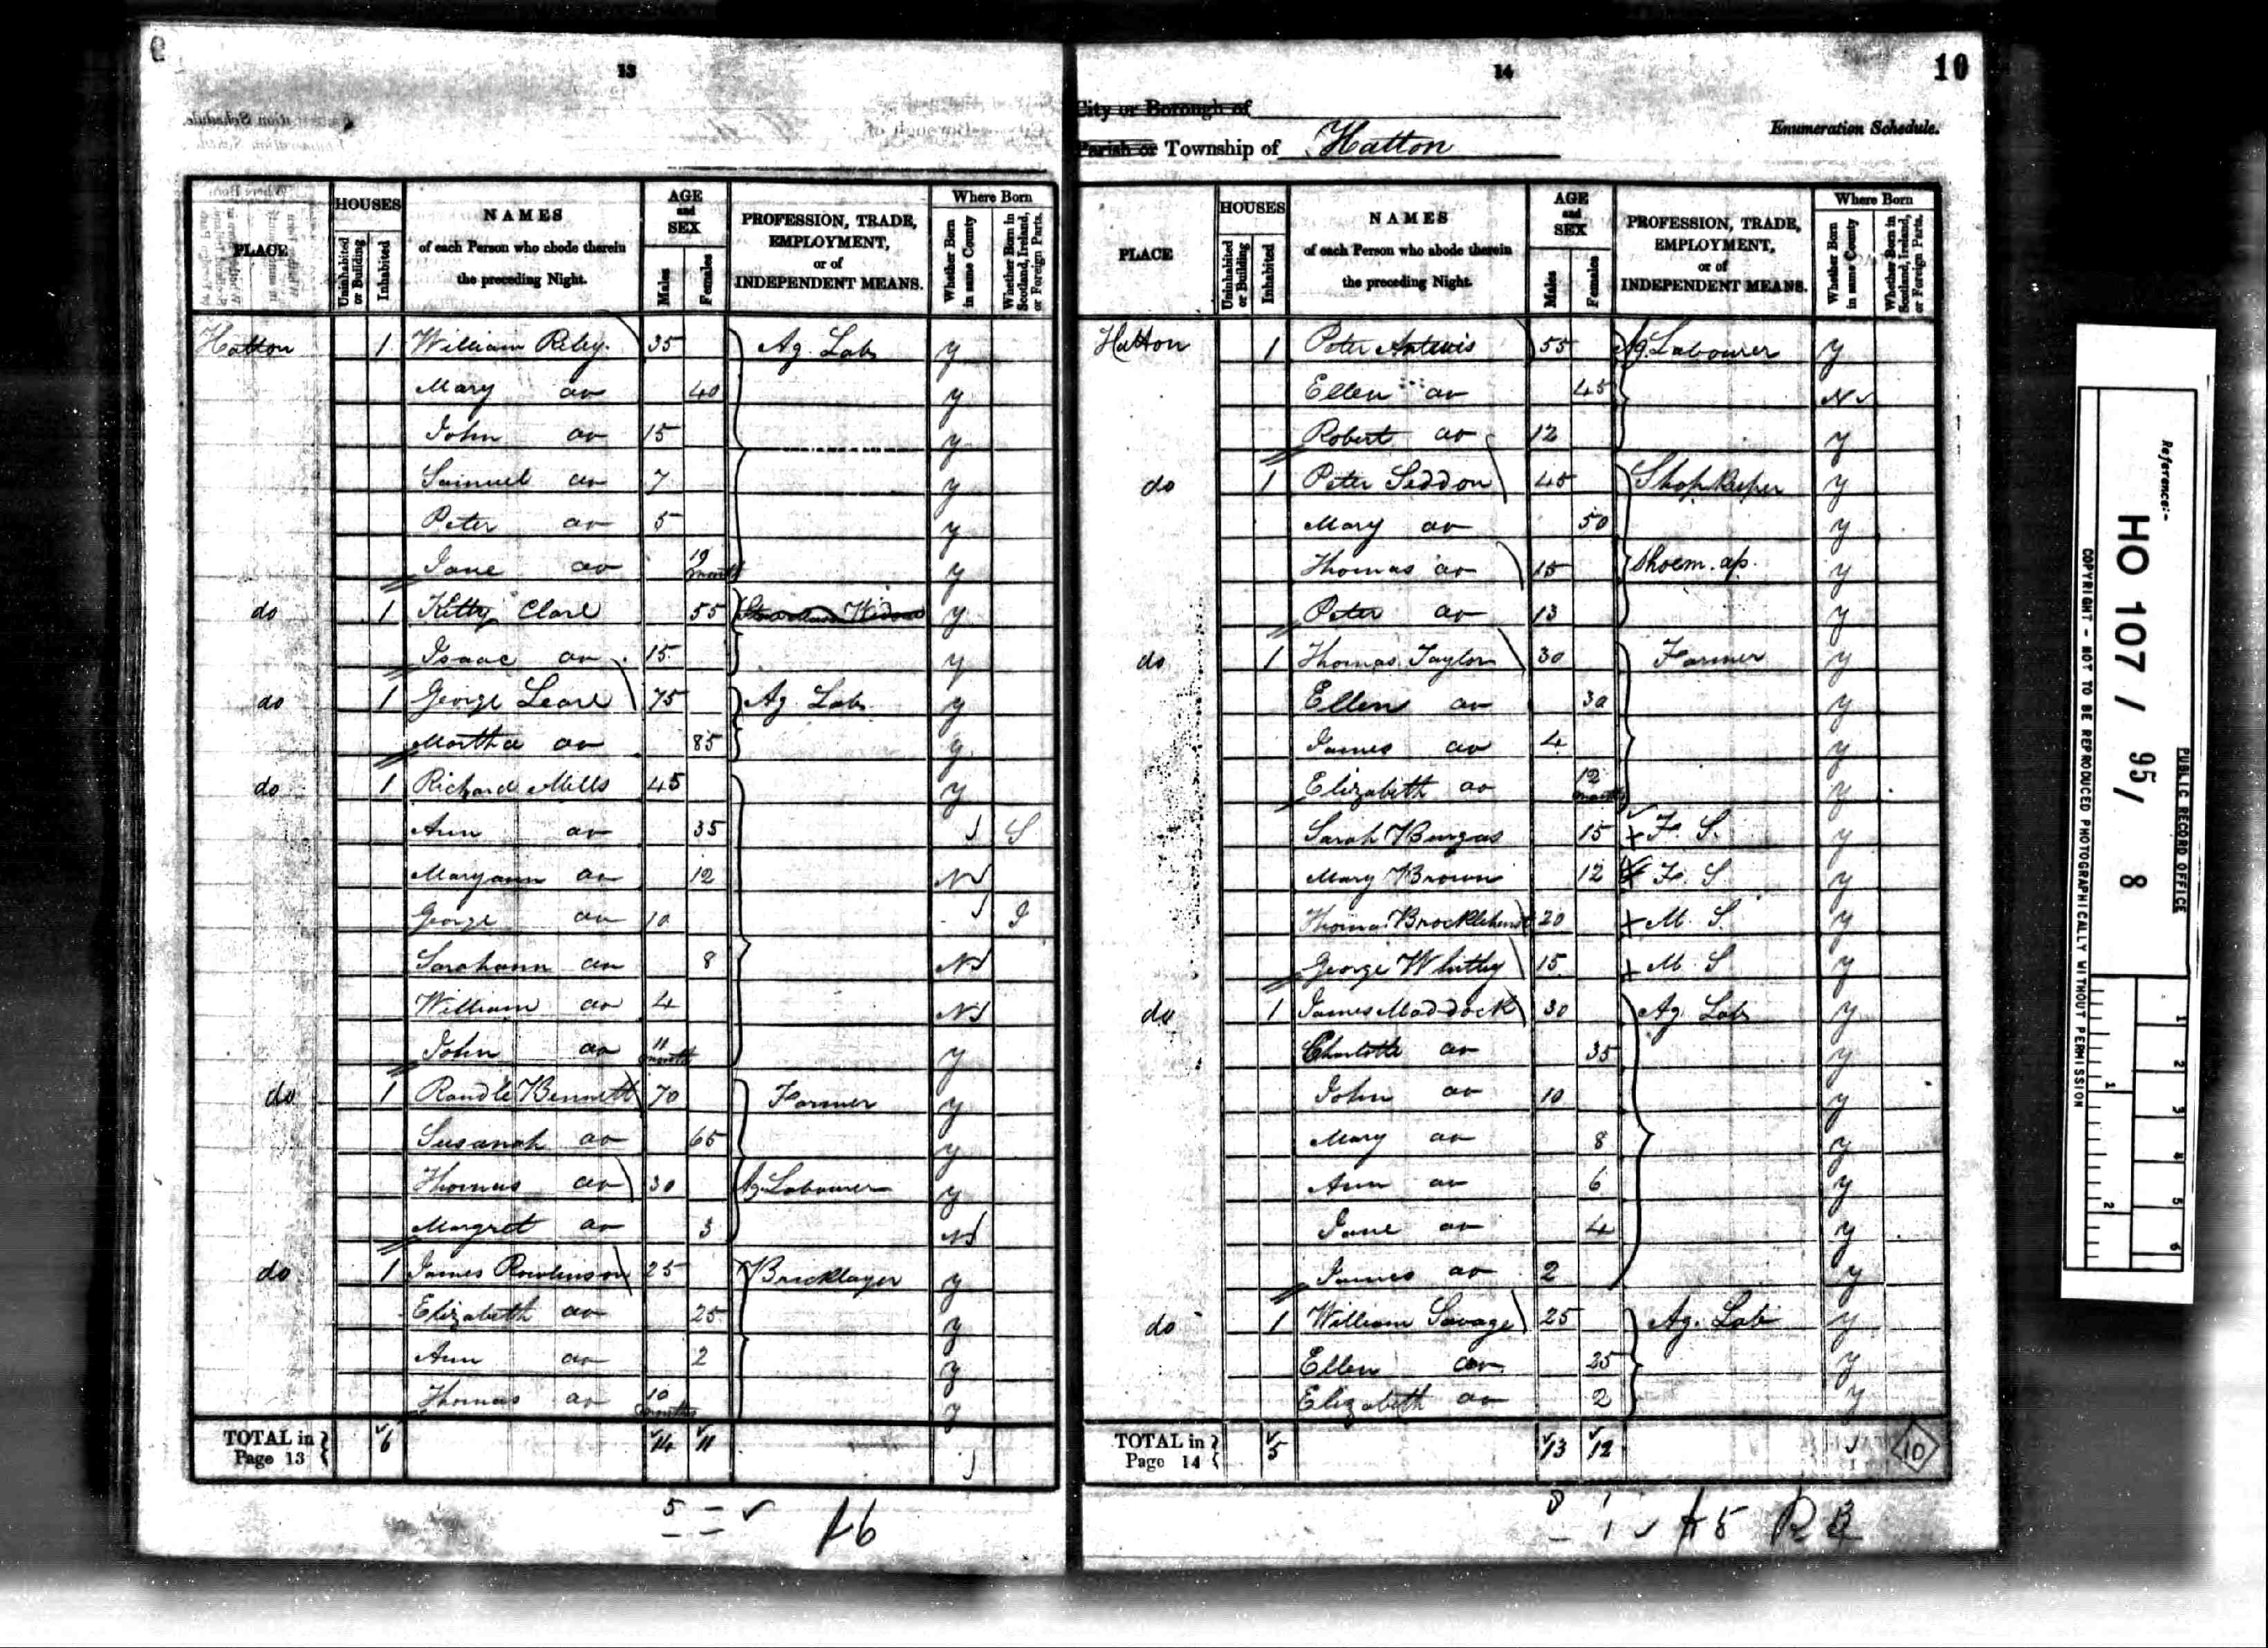 13
PLACE
HOUSES
Uninhabited or Building
Inhabited
NAMES
of each Person who abode therein
the preceding Night.
AGE
and
SEX
Males
Females
PROFESSION, TRADE,
EMPLOYMENT,
or of
INDEPENDENT MEANS.
Where Born
Whether Born in same County
Whether Born in Scotland, Ireland, or Foreign Parts.
Hatton 1 William Riley 35 Ag. Lab y
Mary do 40 y
John do 15 y
Samuel do 7 y
Peter do 5 y
Jane do months y
do 1 Kitty Clare 55 y
Isaac do 15 y
do 1 George Leare 75 Ag Lab y
Martha do 85 y
do 1 Richard Mills 45 y
Ann do 35 S
Maryann do 12 N
George do 10 I
Sarahann do 8 N
William do 4 N
John do 11 months y
do 1 Randle Bennett 70 Farmer y
Susanah do 65 y
Thomas do 30 Ag Labourer y
Margret do 3 N
do 1 James Rowlinson 25 Bricklayer y
Elizabeth do 25 y
Ann do 2 y
Thomas do 10 months y
TOTAL in Page 13 6 14 11
5 – –
16
14
10
City or Borough of
Parish or Township of Hatton
Enumeration Schedule.
PLACE
HOUSES
Uninhabited or Building
Inhabited
NAMES
of each Person who abode therein
the preceding Night.
AGE
and
SEX
Males
Females
PROFESSION, TRADE,
EMPLOYMENT,
or of
INDEPENDENT MEANS.
Where Born
Whether Born in same County
Whether Born in Scotland, Ireland, or Foreign Parts.
Hatton 1 Peter 55 Ag Labourer y
Ellen do 45 N
Robert do 12 y
do 1 Peter Seddon 45 Shopkeeper y
Mary do 50 y
Thomas do 15 Shoem. ap. y
Peter do 13 y
do 1 Thomas Taylor 30 Farmer y
Ellen do 30 y
James do 4 y
Elizabeth do 12 months y
Sarah Burgas 15 F. S. y
Mary Brown 12 F. S. y
Thomas Brocklehurst 20 M. S. y
George Whitby 15 M. S y
do 1 James Maddock 30 Ag. Lab y
Charlotte do 35 y
John do 10 y
Mary do 8 y
Ann do 6 y
Jane do 4 y
James do 2 y
do 1 William Savage 25 Ag. Lab y
Ellen do 25 y
Elizabeth do 2 y
TOTAL in Page 14 5 13 12
10
Reference:-
HO 107 / 95/ 8
PUBLIC RECORD OFFICE
COPYRIGHT - NOT TO BE REPRODUCED PHOTOGRAPHICALLY WITHOUT PERMISSION
1 2 3 4 5 6
1 2